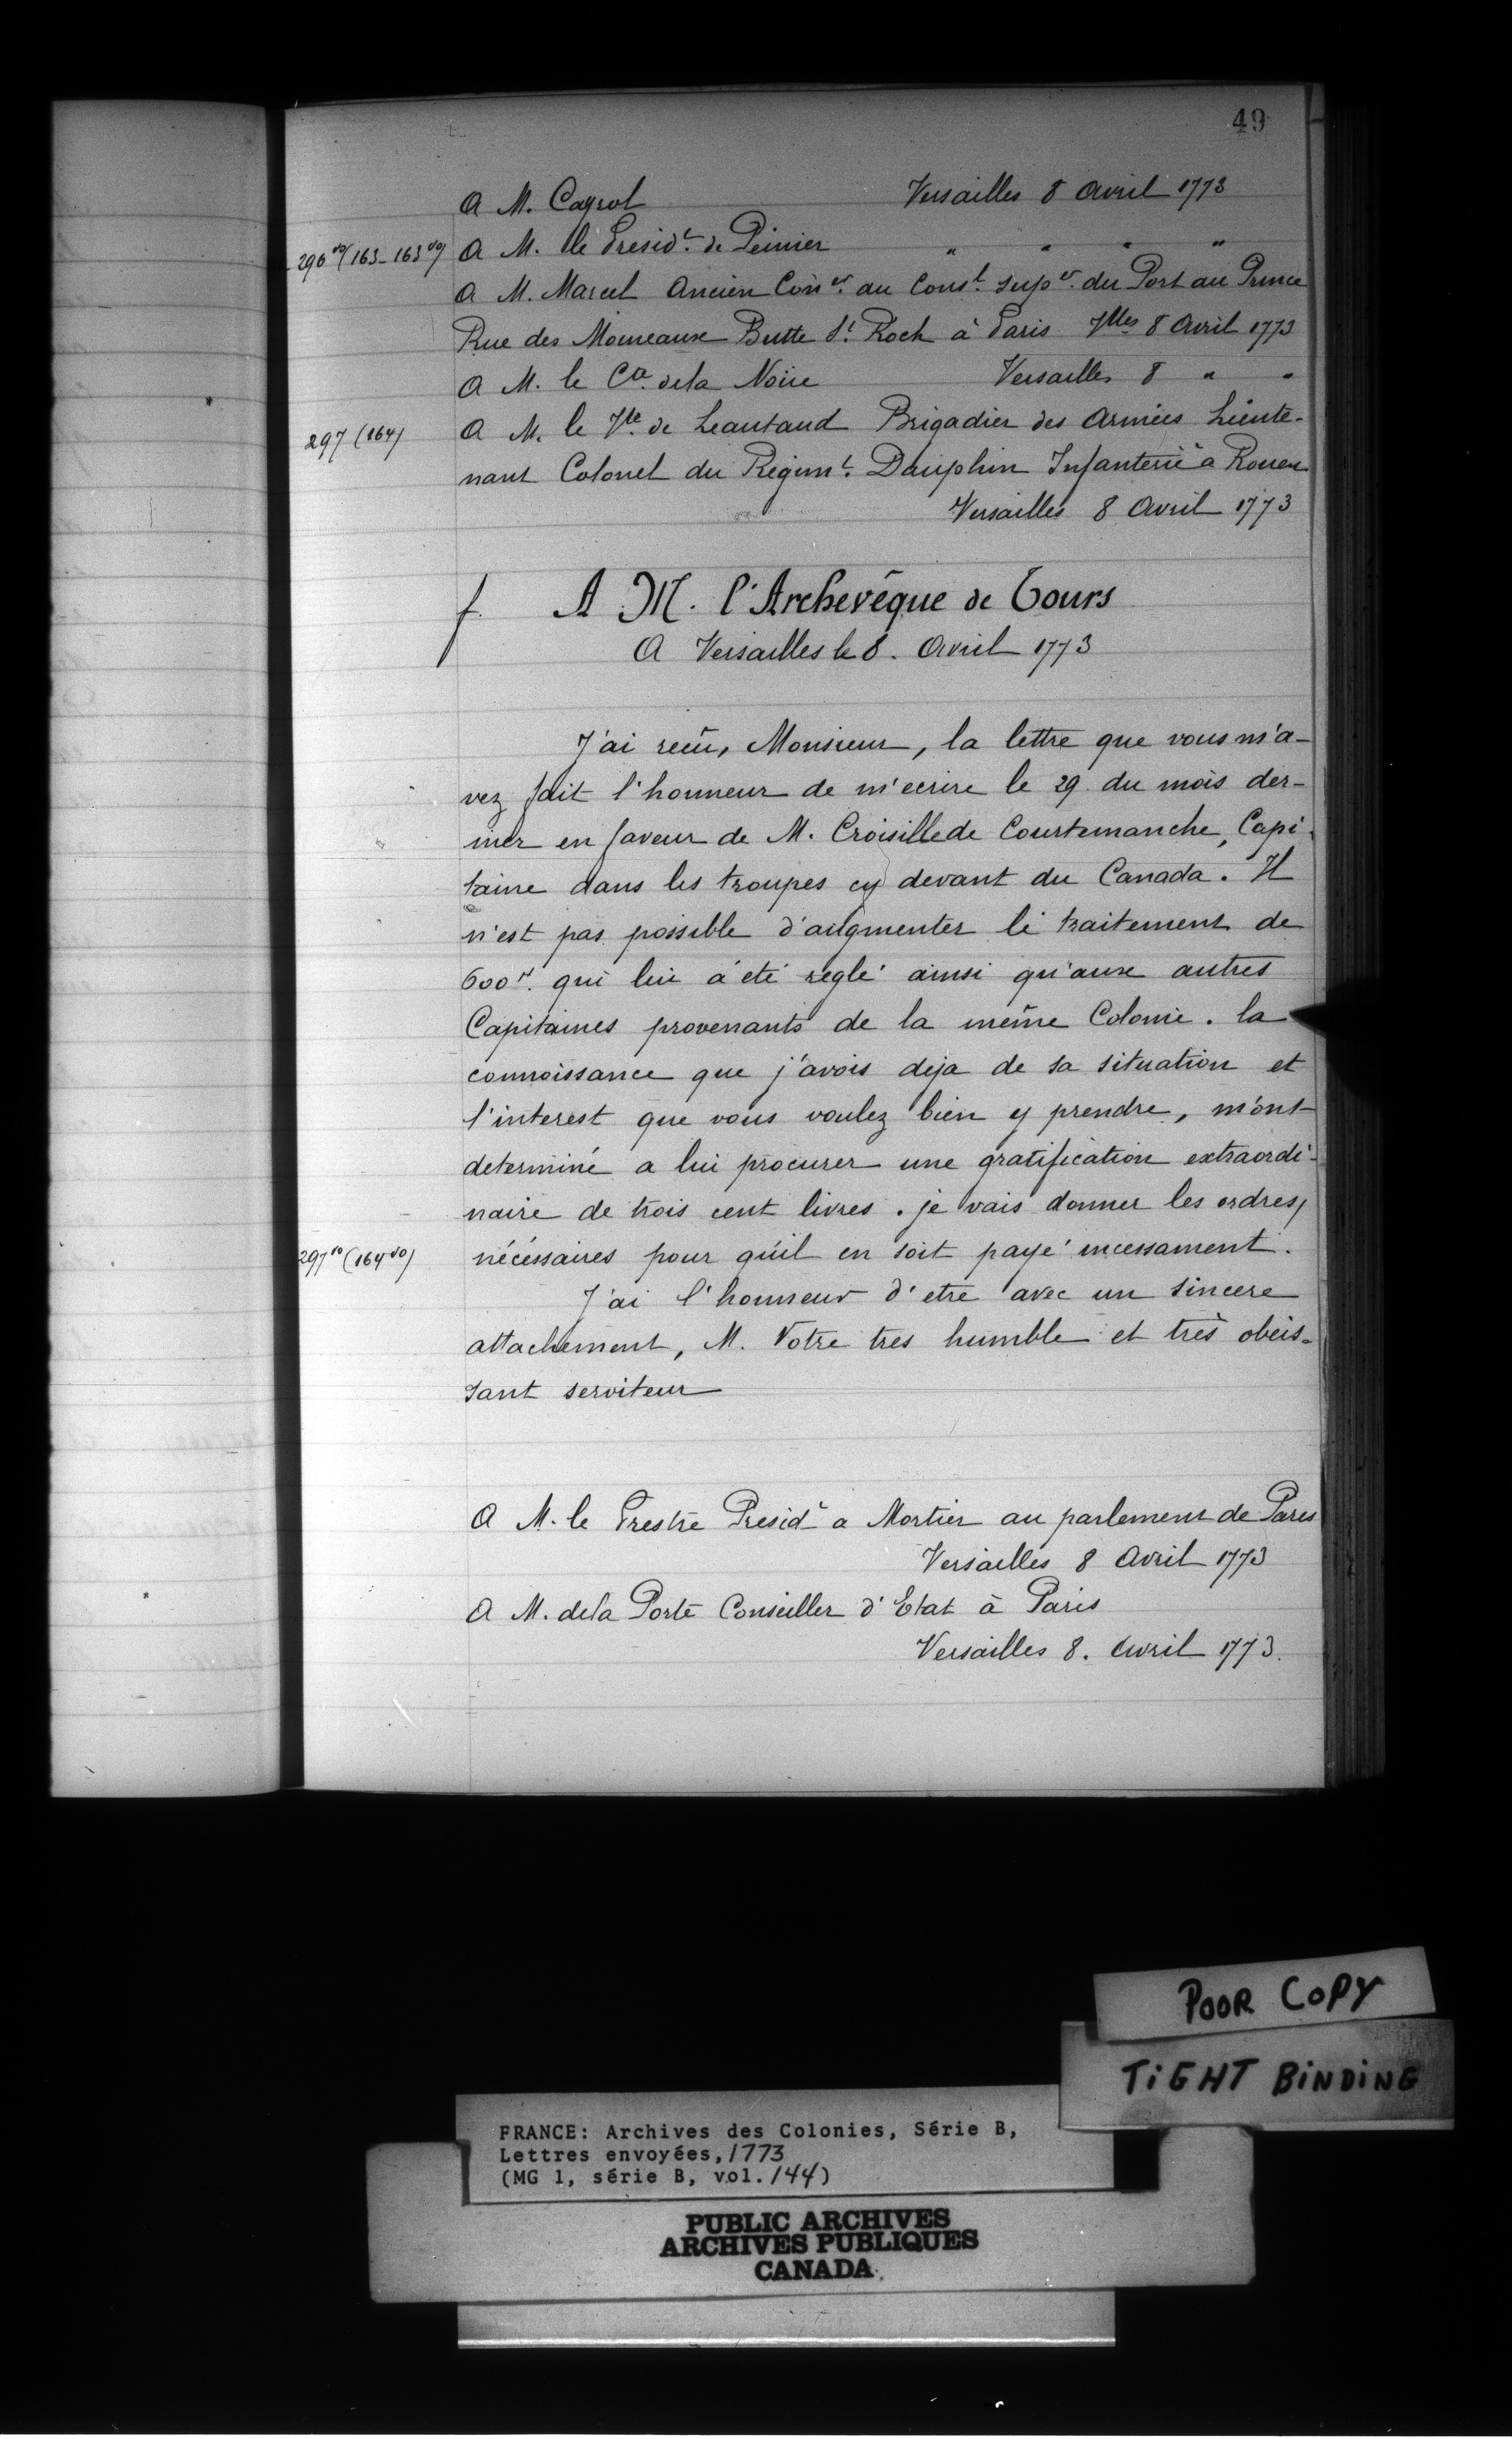 49
A M. Cayrol Versailles 8 Avril 1773
296 vo (163-163 vo) A M. le Presidt. de Peinier " " " "
A M. Marcel Ancien Coner. au Const. Supr. du Port au Prince
Rue des Moineaux Butte St. Roch à Paris Vlles 8 Avril 1773
A M. le Cte. de la Noüe Versailles 8 " "
297 (164) A M. le Vte. de Leautaud Brigadier des Armées Lieute-
nant Colonel du Regimt. Dauphin Infanterie à Rouen
Versailles 8 Avril 1773
f. A M. l'Archevêque de Tours
A Versailles le 8. Avril 1773
J'ai reçu, Monsieur, la lettre que vous m'a-
vez fait l'honneur de m'ecrire le 29 du mois der-
nier en faveur de M. Croisille de Courtemanche, Capi-
taine dans les troupes cy devant du Canada. Il
n'est pas possible d'augmenter le traitement de
600 ". qui lui a été réglé ainsi qu'aux autres
Capitaines provenants de la même Colonie. la
connoissance que j'avois deja de sa situation et
l'interest que vous voulez bien y prendre, m'ont
determiné a lui procurer une gratification extraordi-
naire de trois cent livres. je vais donner les ordres,
297 vo (164 vo) nécéssaires pour qu'il en soit payé incessament.
J'ai l'honneur d'etre avec un sincere
attachement, M. Votre tres humble et très obeis-
sant serviteur
A M. le Prestre Presidt a Mortier au parlement de Paris
Versailles 8 Avril 1773
A M. de la Porte Conseiller d'Etat à Paris
Versailles 8. Avril 1773.
POOR COPY
TiGHT BiNDiNG
FRANCE: Archives des Colonies, Série B,
Lettres envoyées, 1773
(MG 1, série B, vol. 144)
PUBLIC ARCHIVES
ARCHIVES PUBLIQUES
CANADA